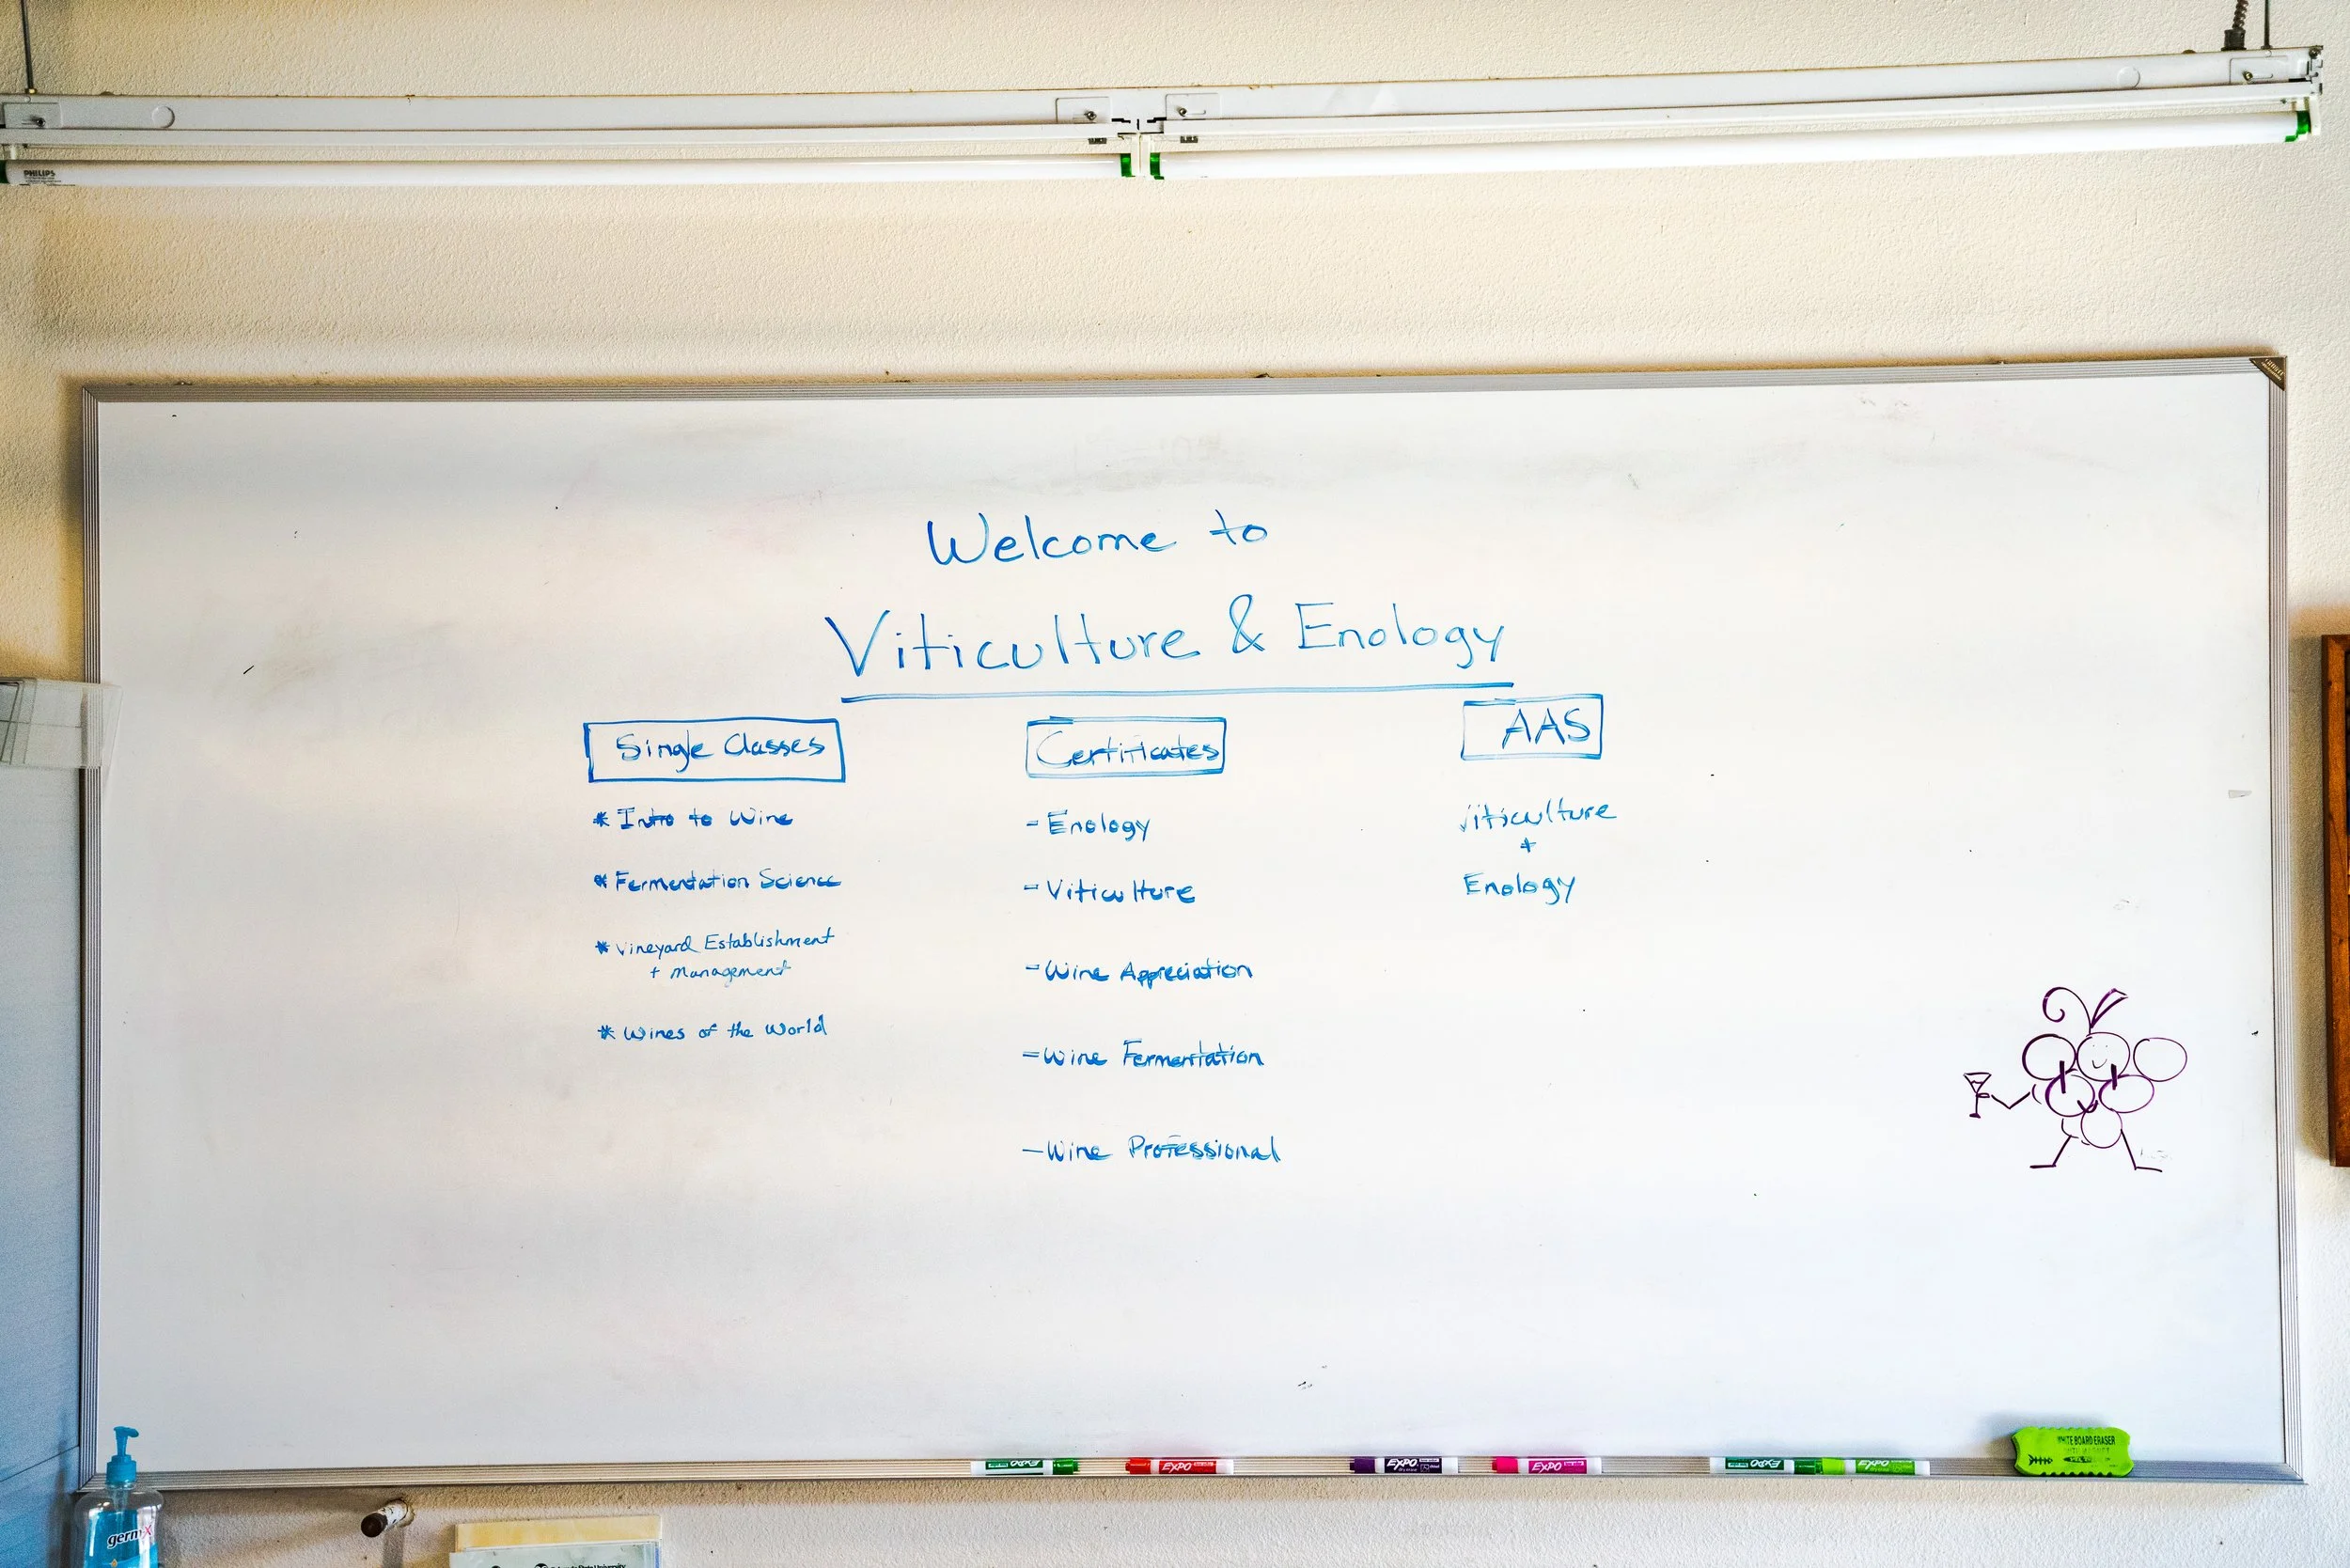 PHILIPS
Welcome to
Viticulture & Enology
Single Classes
* Intro to Wine
* Fermentation Science
* Vineyard Establishment
+ Management
* Wines of the World
Certificates
- Enology
- Viticulture
- Wine Appreciation
- Wine Fermentation
- Wine Professional
AAS
Viticulture
+
Enology
EXPO
EXPO
EXPO
EXPO
EXPO
EXPO
WHITE BOARD ERASER
germ-X
State University